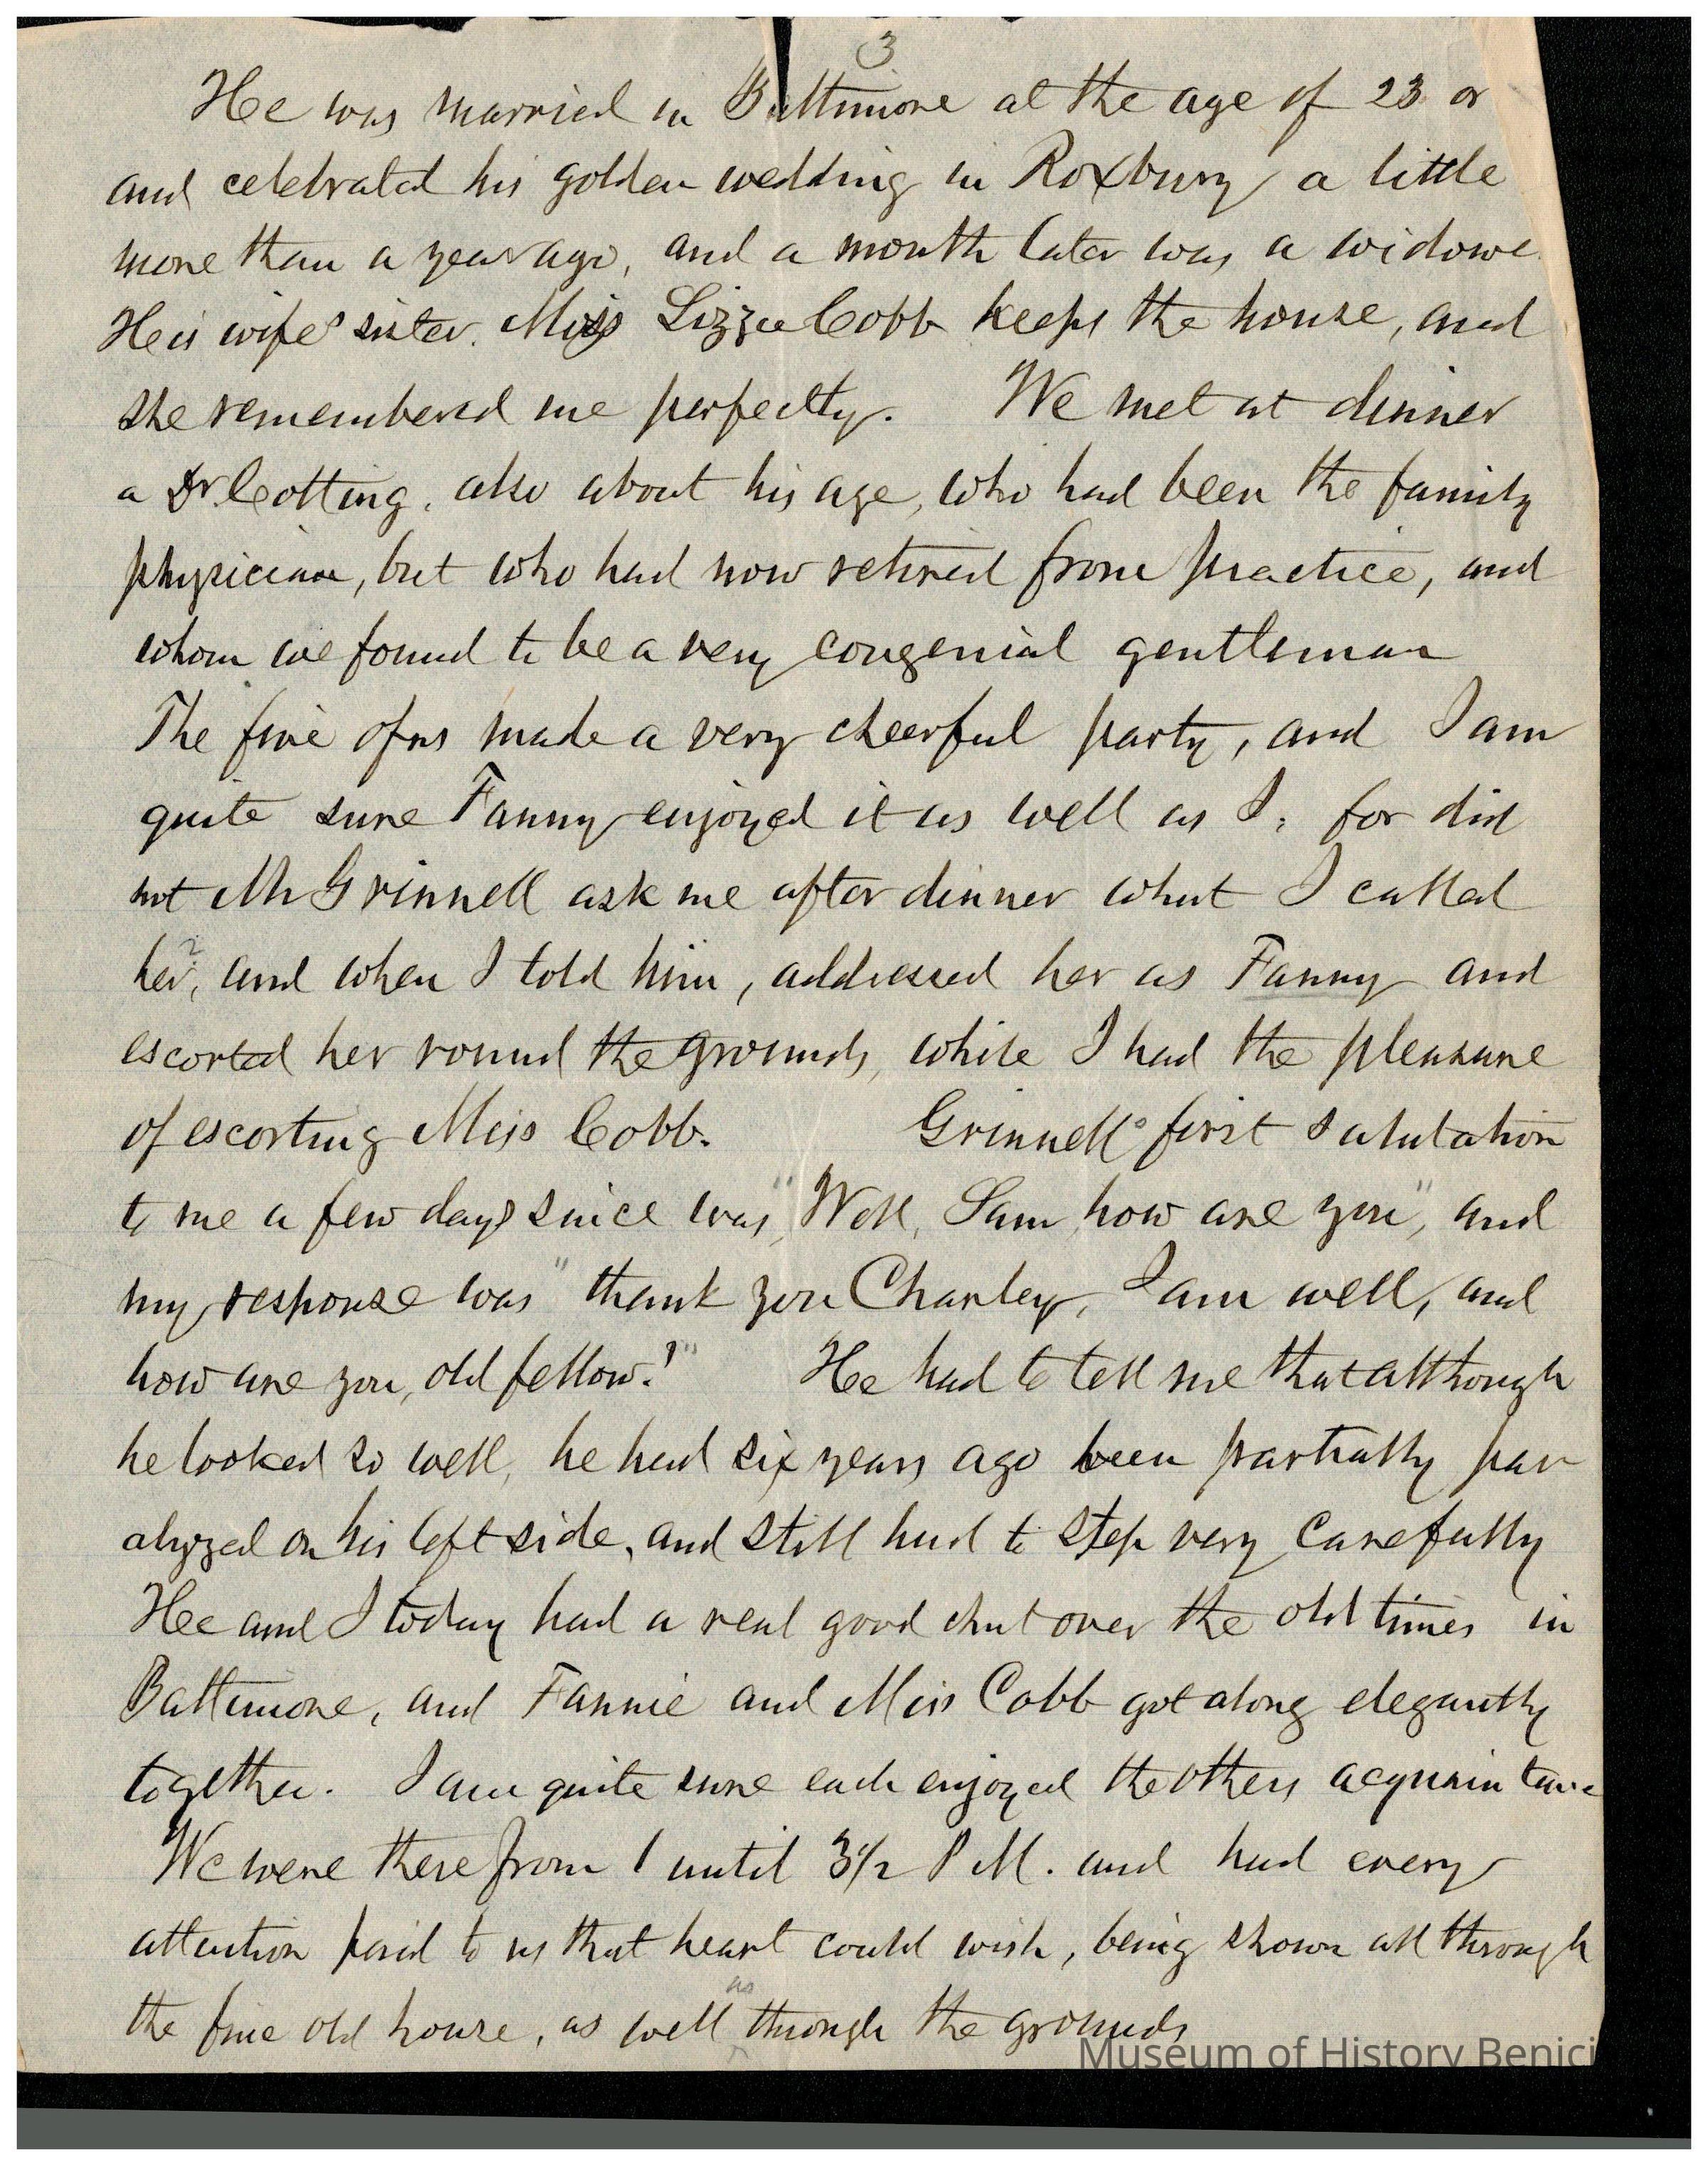 3
He was married in Baltimore at the age of 23 or
and celebrated his golden wedding in Roxbury a little
more than a year ago, and a month later was a widowe
His wife's sister, Miss Lizzie Cobb keeps the house, and
she remembered me perfectly. We met at dinner
a Dr. Cotting, also about his age, who had been the family
physician, but who had now retired from practice, and
whom we found to be a very congenial gentleman
The five of us made a very cheerful party, and I am
quite sure Fanny enjoyed it as well as I; for did
not Mr Grinnell ask me after dinner what I called
her?, and when I told him, addressed her as Fanny and
escorted her round the grounds, while I had the pleasure
of escorting Miss Cobb. Grinnell's first salutation
to me a few days since was, "Well, Sam, how are you", and
my response was "thank you Charley, I am well, and
how are you, old fellow?" He had to tell me that although
he looked so well, he had six years ago been partially par
alyzed on his left side, and still had to step very carefully
He and I today had a real good chat over the old times in
Baltimore, and Fannie and Miss Cobb got along elegantly
together. I am quite sure each enjoyed the others acquaintance
We were there from 1 until 3 1/2 P.M. and had every
attention paid to us that heart could wish, being shown all through
the fine old house, as well as through the grounds
Museum of History Benici